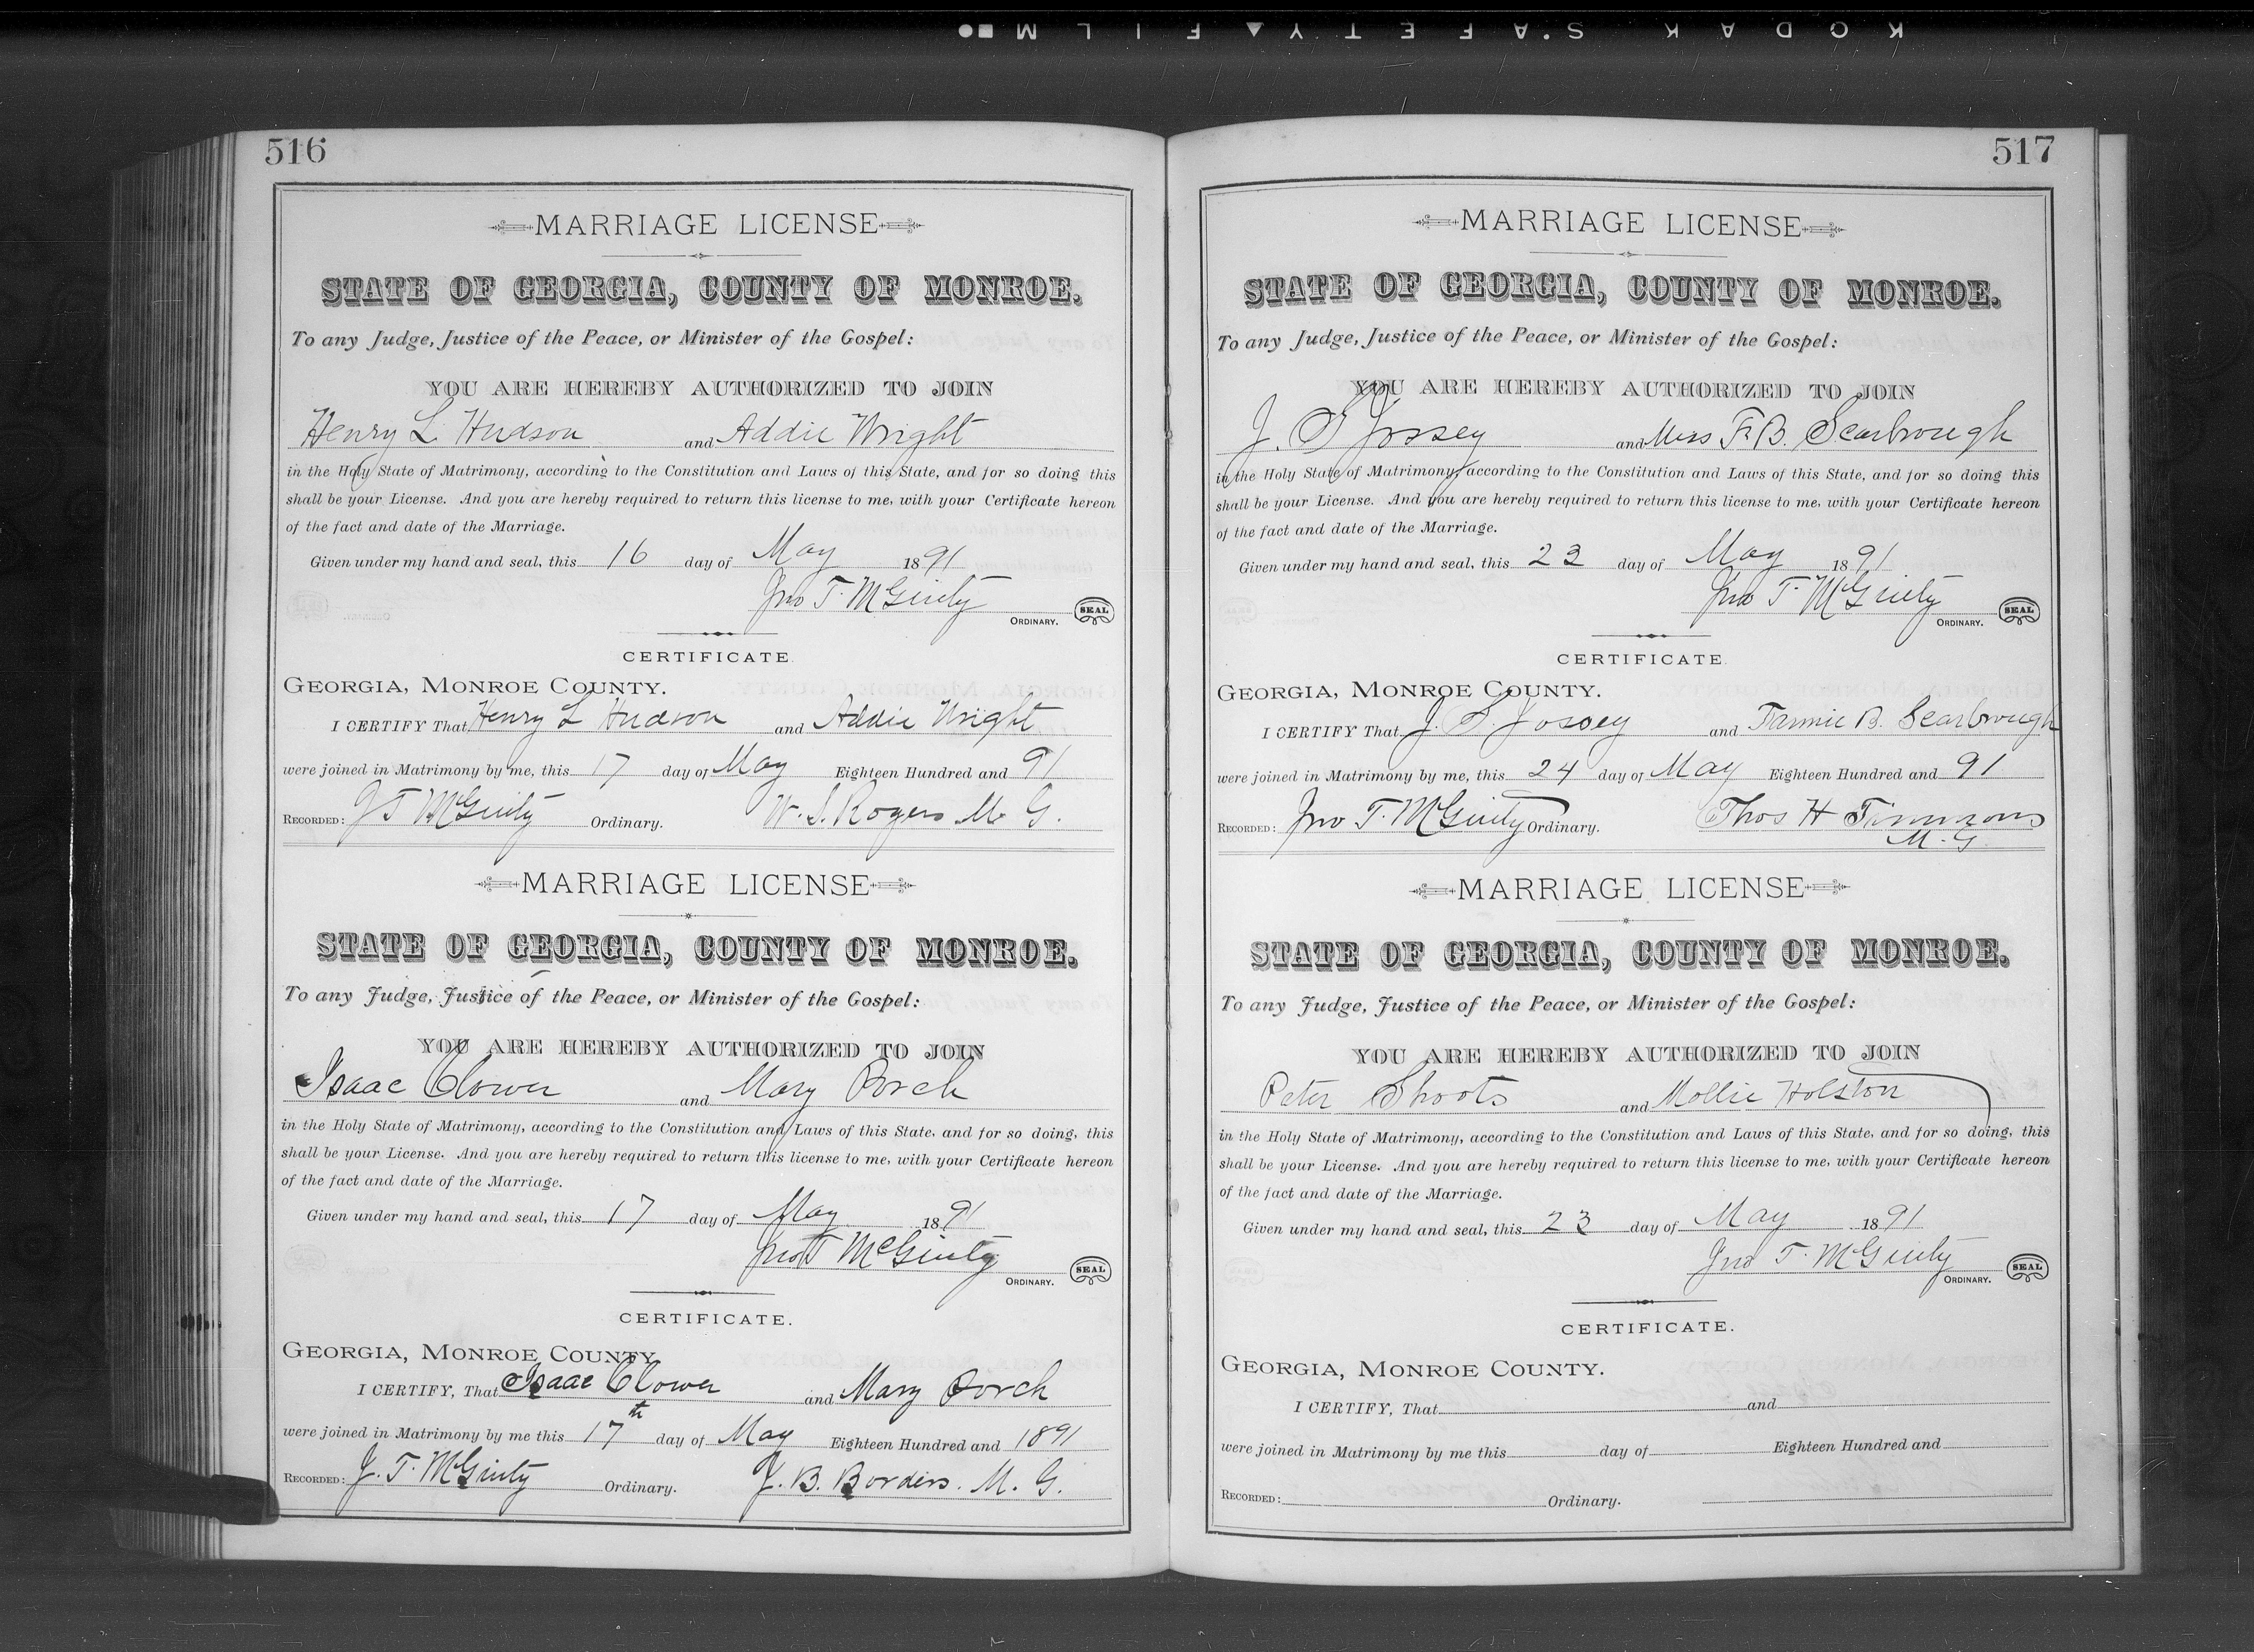 KODAK SAFETY FILM
516
MARRIAGE LICENSE
STATE OF GEORGIA, COUNTY OF MONROE.
To any Judge, Justice of the Peace, or Minister of the Gospel:
YOU ARE HEREBY AUTHORIZED TO JOIN
Henry L Hudson and Addie Wright
in the Holy State of Matrimony, according to the Constitution and Laws of this State, and for so doing this
shall be your License. And you are hereby required to return this license to me, with your Certificate hereon
of the fact and date of the Marriage.
Given under my hand and seal, this 16 day of May 1891
Jno T. McGinty
ORDINARY. SEAL
CERTIFICATE.
GEORGIA, MONROE COUNTY.
I CERTIFY That Henry L Hudson and Addie Wright
were joined in Matrimony by me, this 17 day of May Eighteen Hundred and 91
RECORDED: J T McGinty Ordinary. W. S. Rogers M. G.
MARRIAGE LICENSE
STATE OF GEORGIA, COUNTY OF MONROE.
To any Judge, Justice of the Peace, or Minister of the Gospel:
YOU ARE HEREBY AUTHORIZED TO JOIN
Isaac Clower and Mary Porch
in the Holy State of Matrimony, according to the Constitution and Laws of this State, and for so doing, this
shall be your License. And you are hereby required to return this license to me, with your Certificate hereon
of the fact and date of the Marriage.
Given under my hand and seal, this 17 day of May 1891
Jno T McGinty
ORDINARY. SEAL
CERTIFICATE.
GEORGIA, MONROE COUNTY
I CERTIFY, That Isaac Clower and Mary Porch
were joined in Matrimony by me this 17th day of May Eighteen Hundred and 1891
RECORDED: J. T. McGinty Ordinary. J. B. Borders. M. G.
517
MARRIAGE LICENSE
STATE OF GEORGIA, COUNTY OF MONROE.
To any Judge, Justice of the Peace, or Minister of the Gospel:
YOU ARE HEREBY AUTHORIZED TO JOIN
J. S. Jossey and Miss F. B. Scarbrough
in the Holy State of Matrimony, according to the Constitution and Laws of this State, and for so doing this
shall be your License. And you are hereby required to return this license to me, with your Certificate hereon
of the fact and date of the Marriage.
Given under my hand and seal, this 23 day of May 1891
Jno T. McGinty
ORDINARY. SEAL
CERTIFICATE.
GEORGIA, MONROE COUNTY.
I CERTIFY That J. S. Jossey and Fannie B. Scarbrough
were joined in Matrimony by me, this 24 day of May Eighteen Hundred and 91
RECORDED: Jno T. McGinty Ordinary. Thos H Timmons
M. G.
MARRIAGE LICENSE
STATE OF GEORGIA, COUNTY OF MONROE.
To any Judge, Justice of the Peace, or Minister of the Gospel:
YOU ARE HEREBY AUTHORIZED TO JOIN
Peter Shoots and Mollie Holston
in the Holy State of Matrimony, according to the Constitution and Laws of this State, and for so doing, this
shall be your License. And you are hereby required to return this license to me, with your Certificate hereon
of the fact and date of the Marriage.
Given under my hand and seal, this 23 day of May 1891
Jno T. McGinty
ORDINARY. SEAL
CERTIFICATE.
GEORGIA, MONROE COUNTY.
I CERTIFY, That and
were joined in Matrimony by me this day of Eighteen Hundred and
RECORDED: Ordinary.